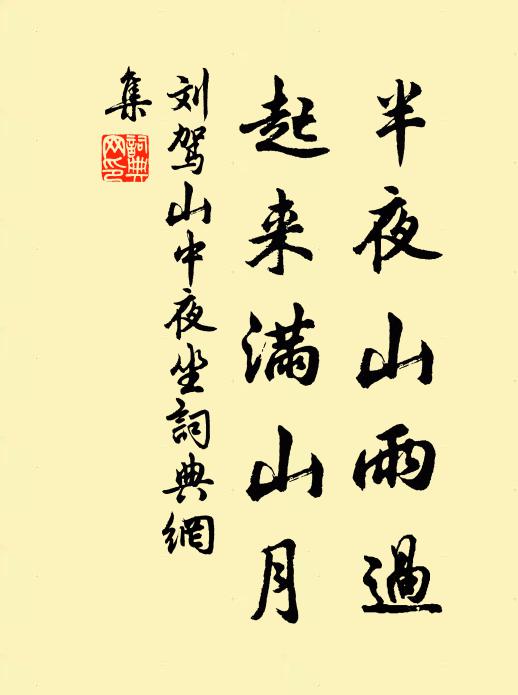 半夜山雨過
起来滿山月
刘駕山中夜坐詞典網
集
詞典
网印